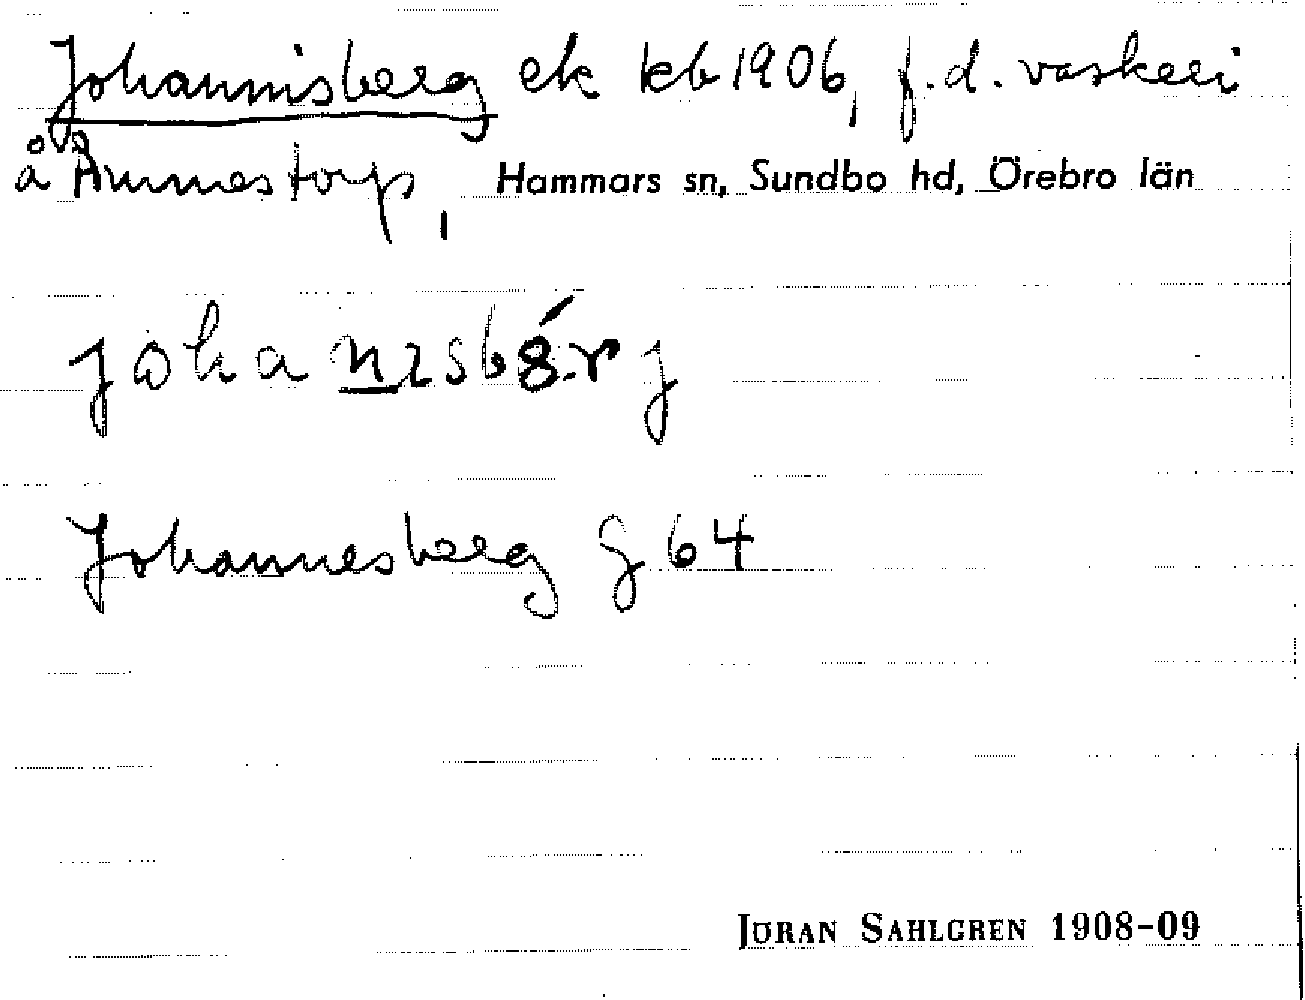 Johannisberg ek kb 1906, f.d. vaskeri
å Åmmestorp, Hammars sn, Sundbo hd, Örebro län
Johannesberg G 64
JÖRAN SAHLGREN 1908-09